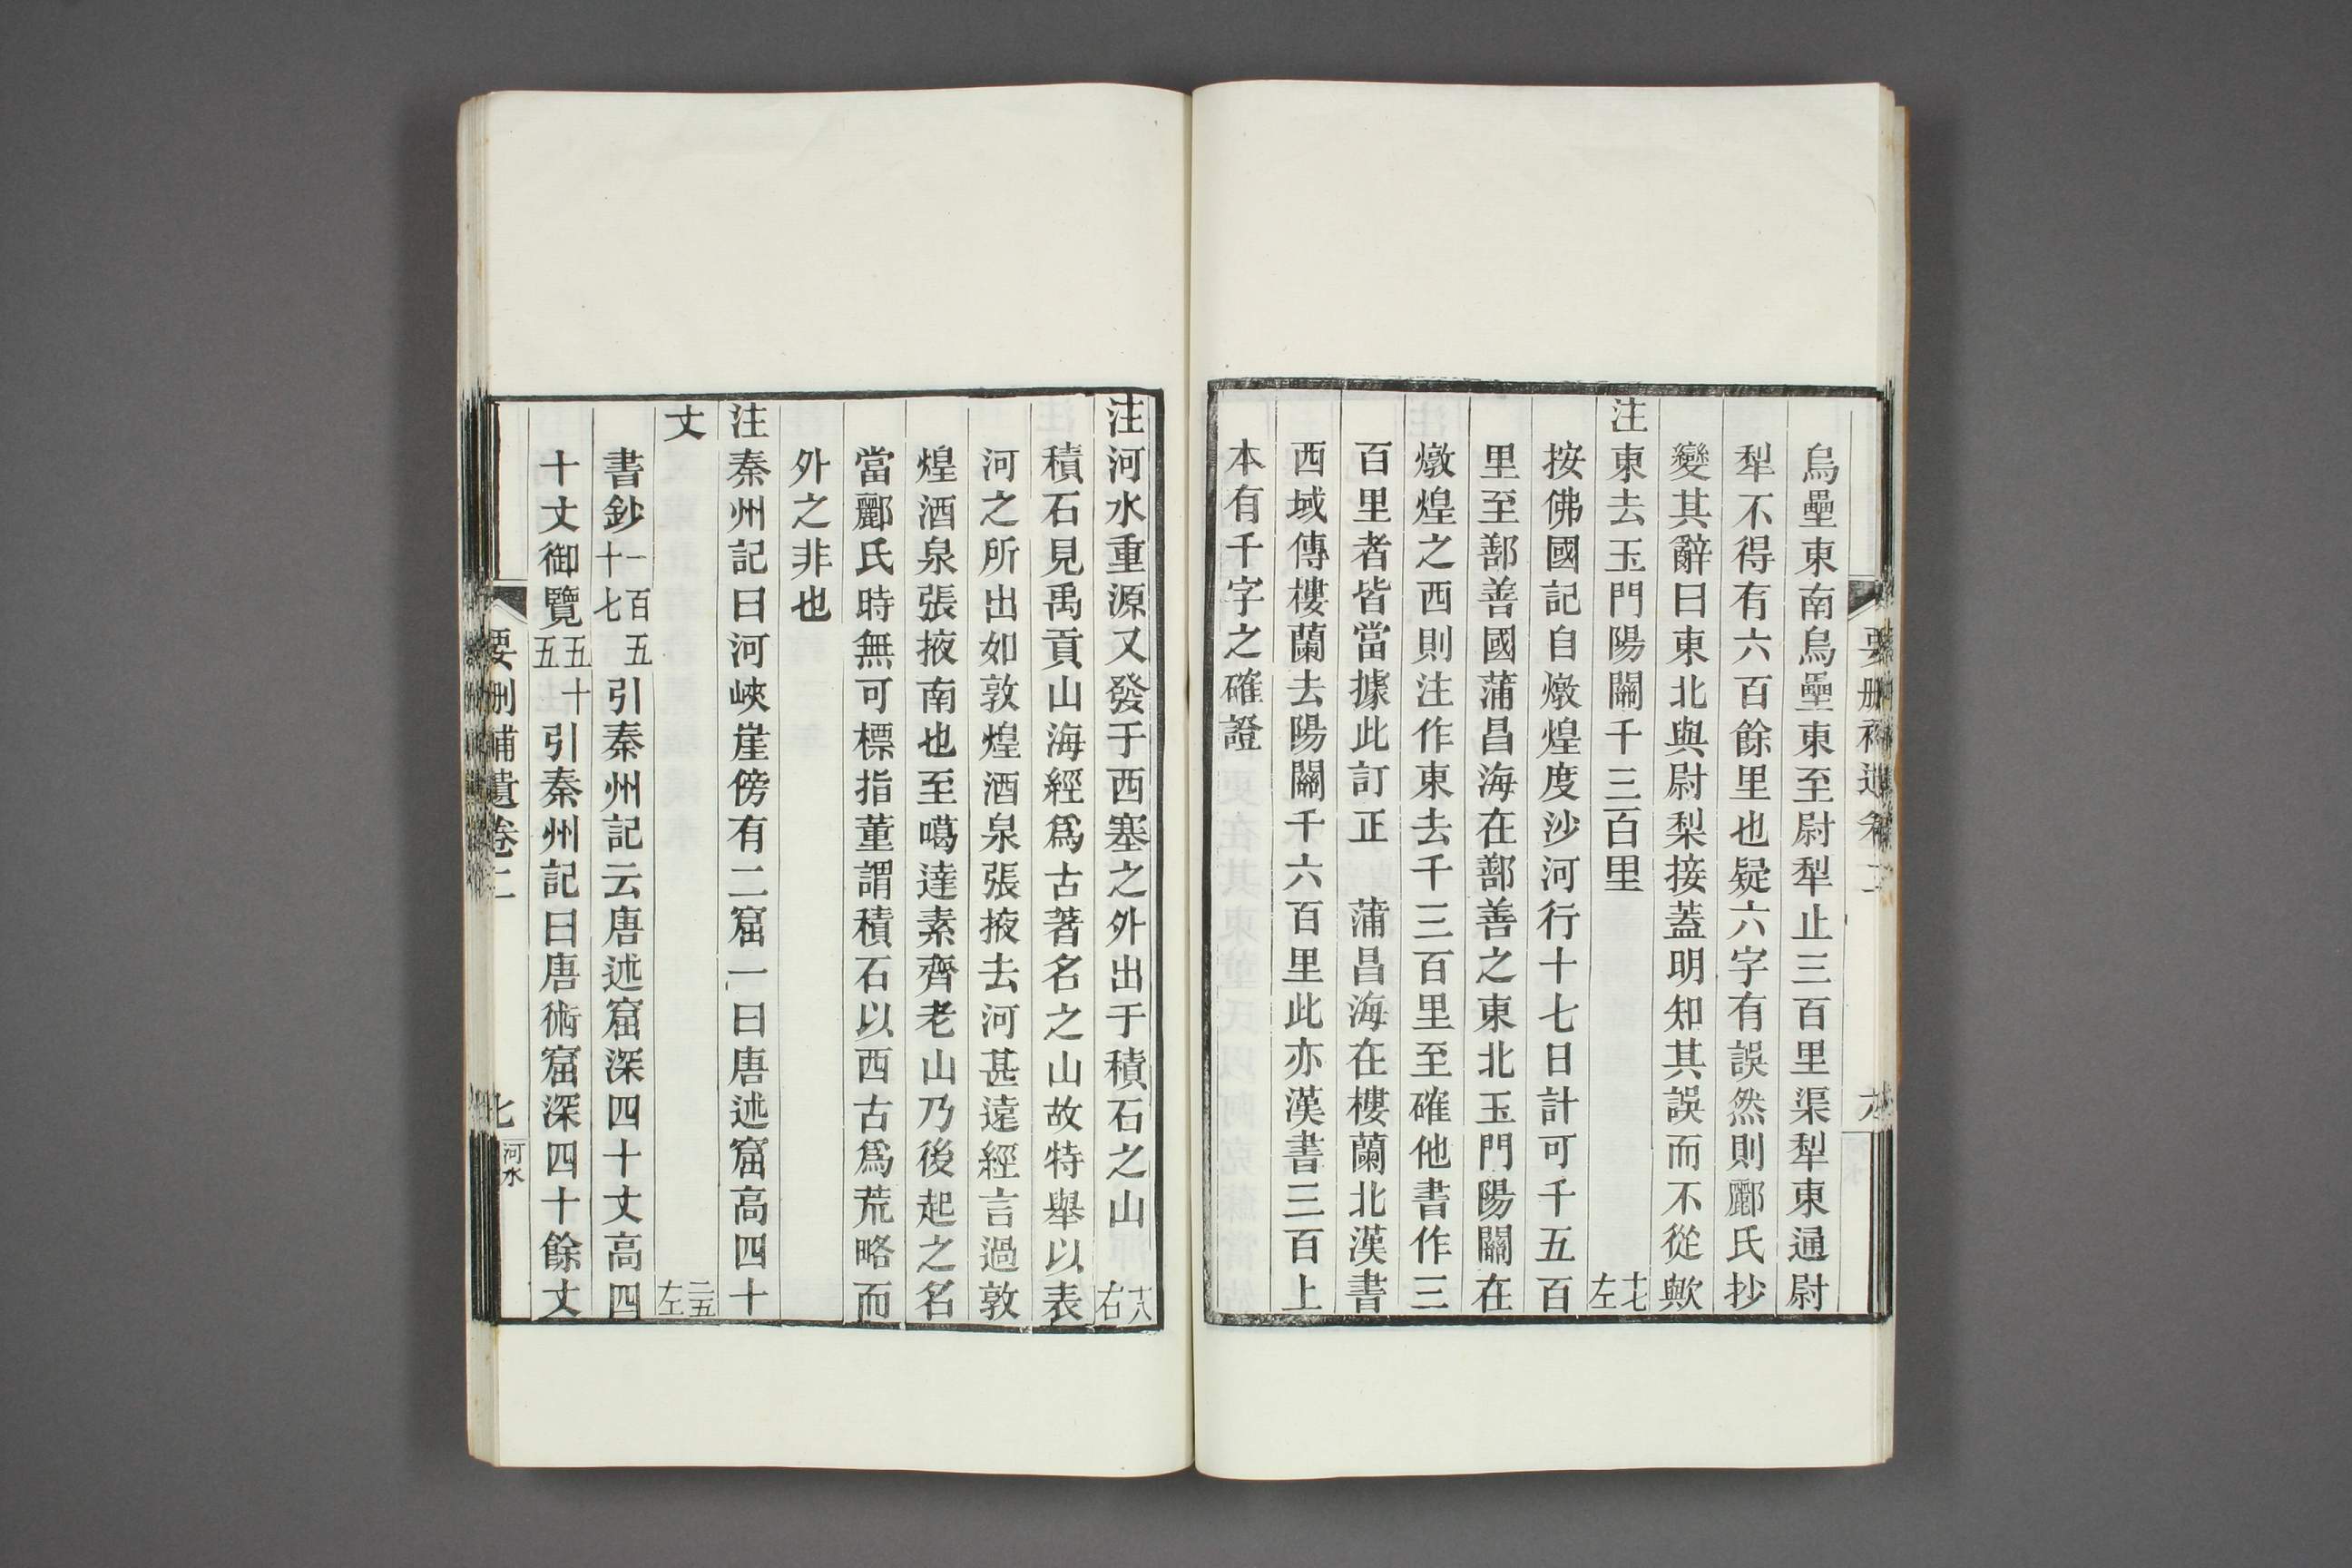 烏壘東南烏壘東至尉犁止三百里渠犁東通尉
犁不得有六百餘里也疑六字有誤然則酈氏抄
變其辭曰東北與尉梨接蓋明知其誤而不從歟
注東去玉門陽關千三百里十七左
按佛國記自燉煌度沙河行十七日計可千五百
里至鄯善國蒲昌海在鄯善之東北玉門陽關在
燉煌之西則注作東去千三百里至確他書作三
百里者皆當據此訂正　蒲昌海在樓蘭北漢書
西域傳樓蘭去陽關千六百里此亦漢書三百上
本有千字之確證
注河水重源又發于西塞之外出于積石之山十八右
積石見禹貢山海經爲古著名之山故特舉以表
河之所出如敦煌酒泉張掖去河甚遠經言過敦
煌酒泉張掖南也至噶達素齊老山乃後起之名
當酈氏時無可標指董謂積石以西古爲荒略而
外之非也
注秦州記曰河峽崖傍有二窟一曰唐述窟高四十
丈二五左
書鈔一百五十七五引秦州記云唐述窟深四十丈高四
十丈御覽五十五引秦州記曰唐術窟深四十餘丈
要刪補遺卷二
七
河水